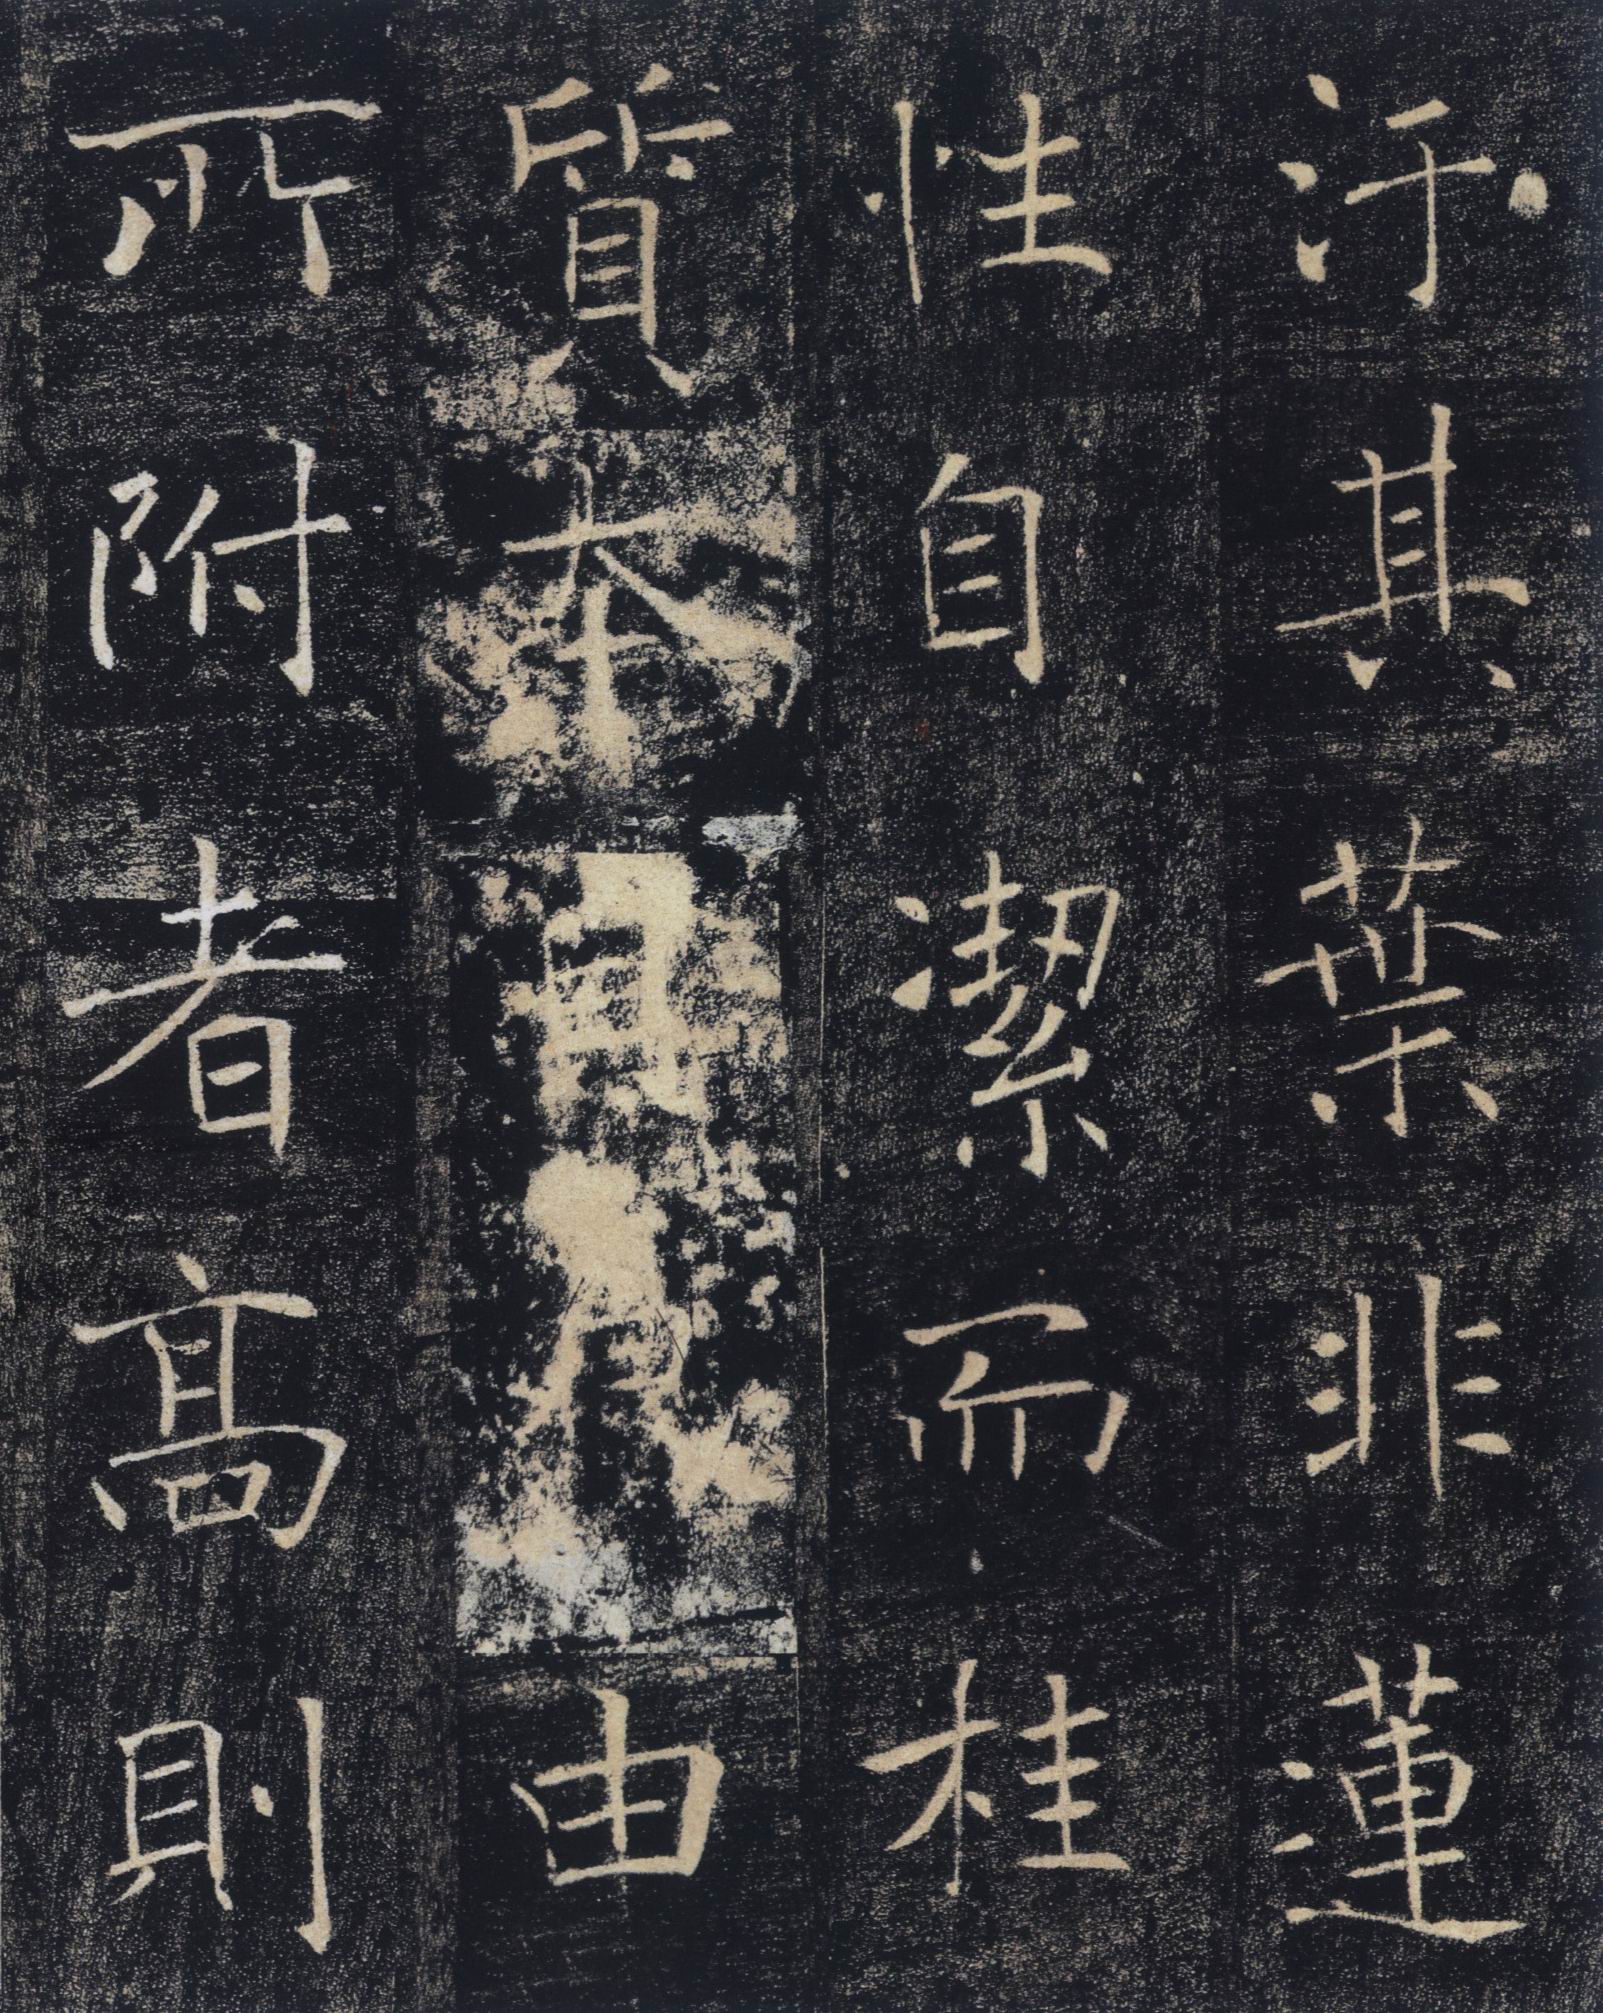 汙其葉非蓮
性自潔而桂
質本貞良由
所附者高則